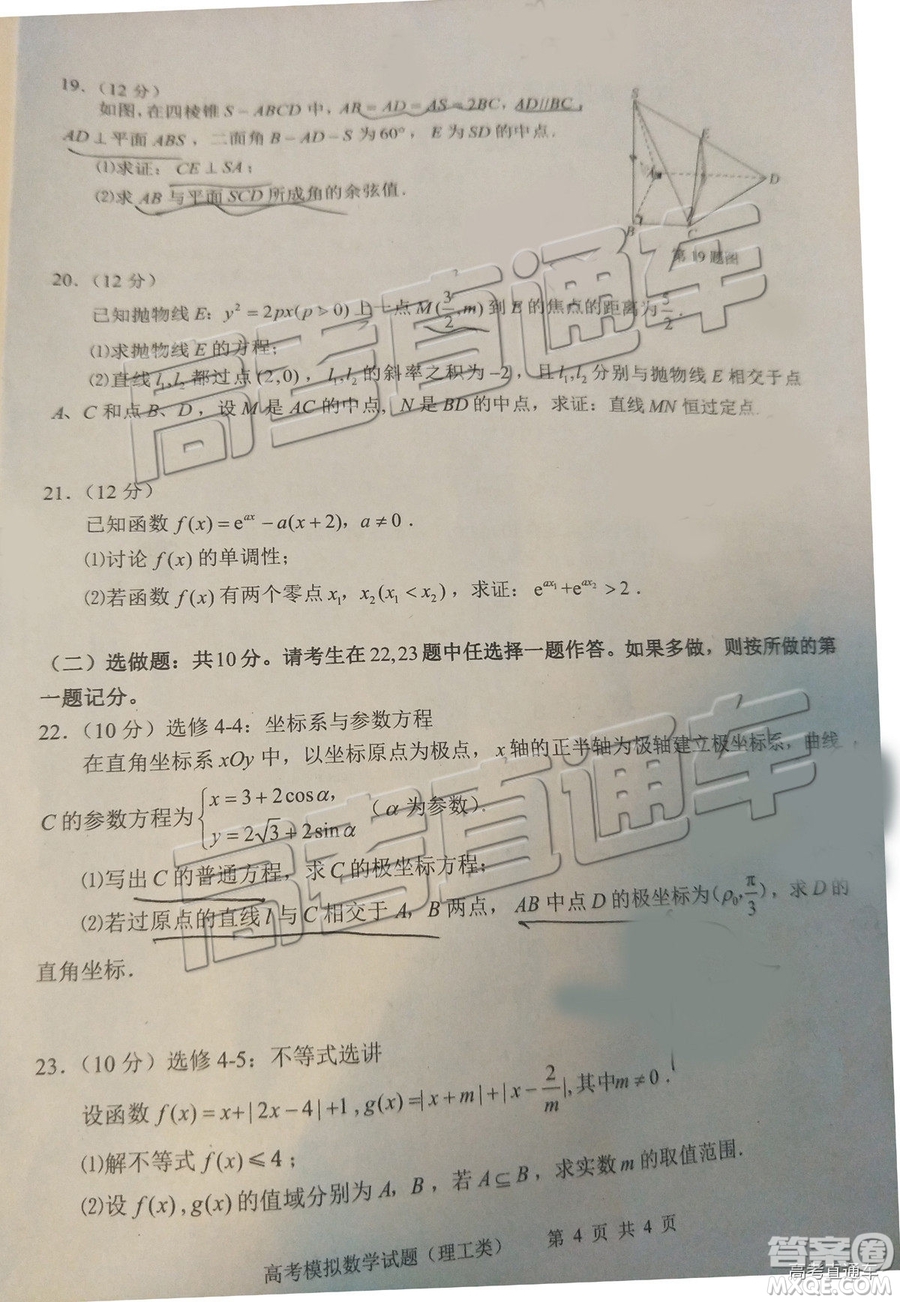 19．（12 分）
如图,在四棱锥 S－ABCD 中，AB＝AD＝AS＝2BC，AD//BC，
AD⊥平面 ABS，二面角 B－AD－S 为 60°，E 为 SD 的中点．
⑴求证：CE⊥SA；
⑵求 AB 与平面 SCD 所成角的余弦值．
S
E
A
D
B
C
第 19 题图
20．（12 分）
已知抛物线 E：y² = 2px(p > 0) 上一点 M(3/2, m) 到 E 的焦点的距离为 5/2．
⑴求抛物线 E 的方程；
⑵直线 l₁, l₂ 都过点 (2,0)，l₁, l₂ 的斜率之积为 −2，且 l₁, l₂ 分别与抛物线 E 相交于点
A、C 和点 B、D，设 M 是 AC 的中点，N 是 BD 的中点，求证：直线 MN 恒过定点
21．（12 分）
已知函数 f(x) = e^{ax} − a(x + 2)，a ≠ 0．
⑴讨论 f(x) 的单调性；
⑵若函数 f(x) 有两个零点 x₁，x₂(x₁ < x₂)，求证：e^{ax₁}+e^{ax₂} > 2．
（二）选做题：共10分。请考生在 22,23 题中任选择一题作答。如果多做，则按所做的第
一题记分。
22．（10 分）选修 4-4：坐标系与参数方程
在直角坐标系 xOy 中，以坐标原点为极点，x 轴的正半轴为极轴建立极坐标系，曲线
C 的参数方程为 { x = 3 + 2cos α, y = 2√3 + 2sin α （α 为参数）．
⑴写出 C 的普通方程，求 C 的极坐标方程；
⑵若过原点的直线 l 与 C 相交于 A，B 两点，AB 中点 D 的极坐标为(ρ₀, π/3)，求 D 的
直角坐标．
23．（10 分）选修 4-5：不等式选讲
设函数 f(x) = x+ | 2x − 4 | +1 , g(x) =| x + m | + | x − 2/m |, 其中m ≠ 0．
⑴解不等式 f(x) ⩽ 4；
⑵设 f(x), g(x) 的值域分别为 A，B，若 A ⊆ B，求实数 m 的取值范围．
高考模拟数学试题（理工类） 第 4 页 共 4 页
高考直通车
高考直通车
答案卷
高考直通车
MXQE.COM